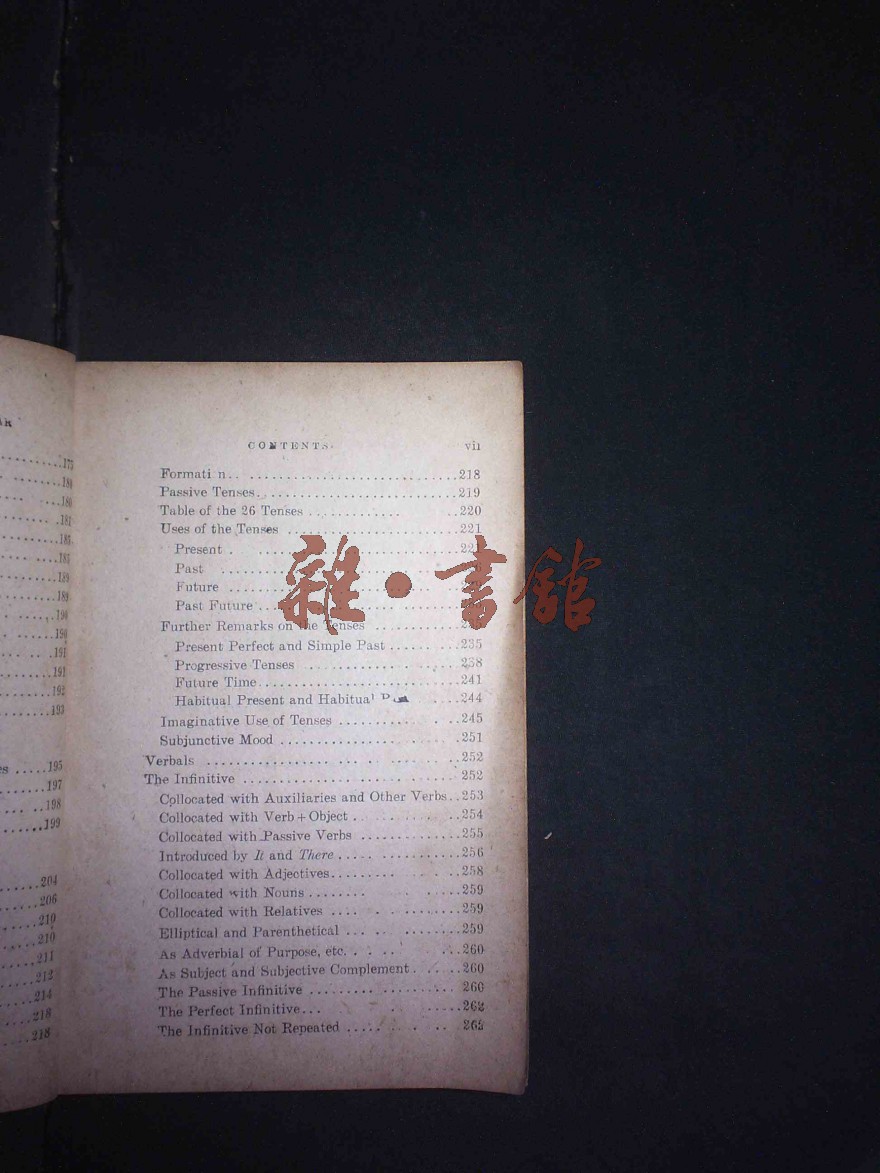 175
180
180
181
183
185
189
189
190
190
191
191
192
193
195
197
198
199
204
206
210
210
211
212
214
218
218
CONTENTS. vii
Formati n.. ............................218
Passive Tenses............................219
Table of the 26 Tenses ............ ..220
Uses of the Tenses ......................221
Present
Past
Future
Past Future
Further Remarks on the Tenses
Present Perfect and Simple Past..........235
Progressive Tenses ....................238
Future Time............................241
Habitual Present and Habitual ....244
Imaginative Use of Tenses ...............245
Subjunctive Mood ........................251
Verbals ................................252
The Infinitive ..........................252
Collocated with Auxiliaries and Other Verbs..253
Collocated with Verb + Object ............254
Collocated with Passive Verbs ............255
Introduced by It and There...............256
Collocated with Adjectives...............258
Collocated with Nouns...................259
Collocated with Relatives ................259
Elliptical and Parenthetical ..............259
As Adverbial of Purpose, etc. ............260
As Subject and Subjective Complement......260
The Passive Infinitive ...................260
The Perfect Infinitive...................262
The Infinitive Not Repeated ..............
雜·書館